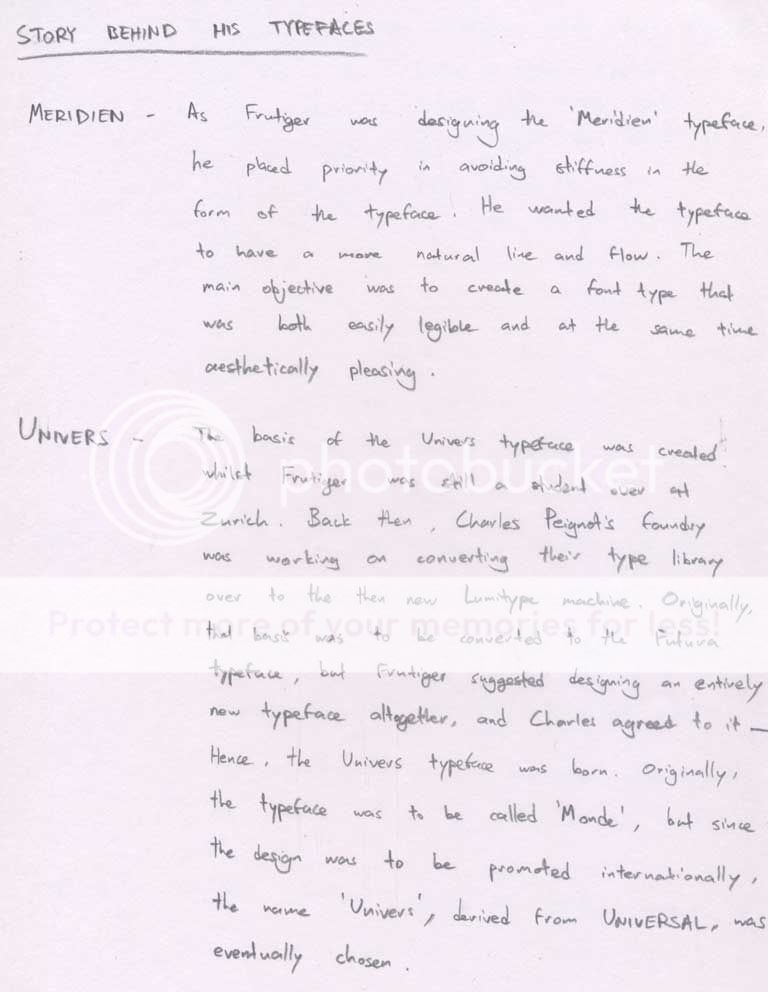 STORY BEHIND HIS TYPEFACES
MERIDIEN - As Frutiger was designing the 'Meridien' typeface,
he placed priority in avoiding stiffness in the
form of the typeface. He wanted the typeface
to have a more natural line and flow. The
main objective was to create a font type that
was both easily legible and at the same time
aesthetically pleasing.
UNIVERS - The basis of the Univers typeface was created
whilst Frutiger was still a student over at
photobucket
Zurich. Back then, Charles Peignot's foundry
was working on converting their type library
over to the then new Lumitype machine. Originally,
Protect more of your memories for less!
that basis was to be converted to the Futura
typeface, but Frutiger suggested designing an entirely
new typeface altogether, and Charles agreed to it —
Hence, the Univers typeface was born. Originally,
the typeface was to be called 'Monde', but since
the design was to be promoted internationally,
the name 'Univers', derived from UNIVERSAL, was
eventually chosen.